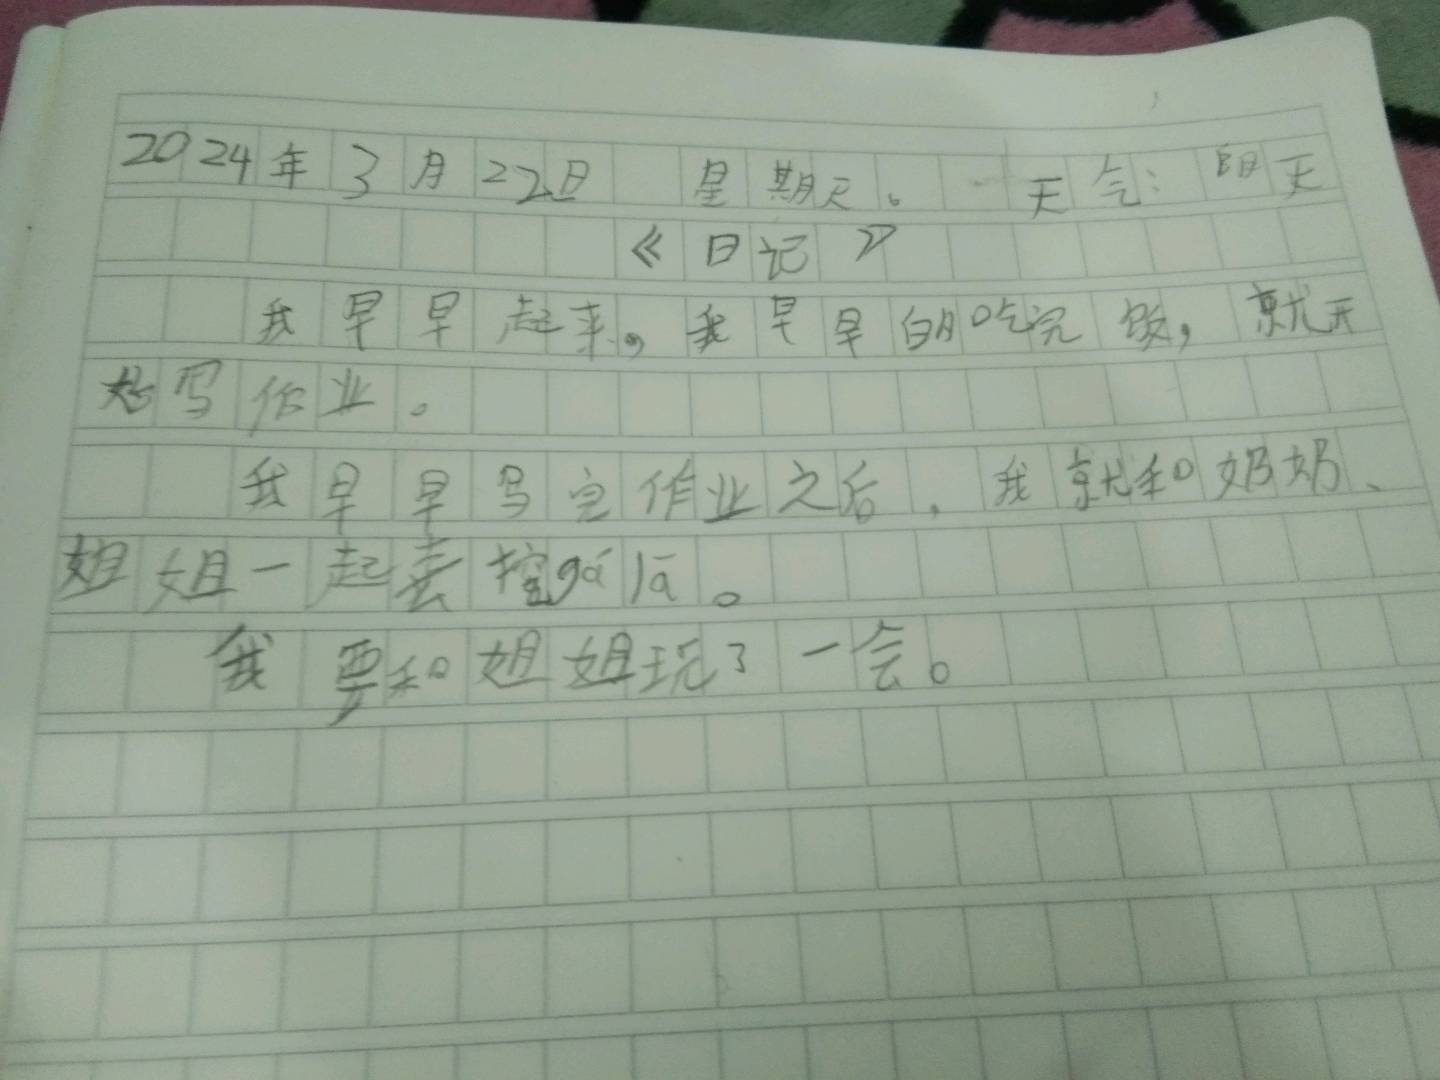 2024年3月22日 星期天。 天气：阴天
《日记》
我早早起来，我早早的吃完饭，就开
始写作业。
我早早写完作业之后，我就和奶奶、
姐姐一起去挖gá lā。
我要和姐姐玩了一会。